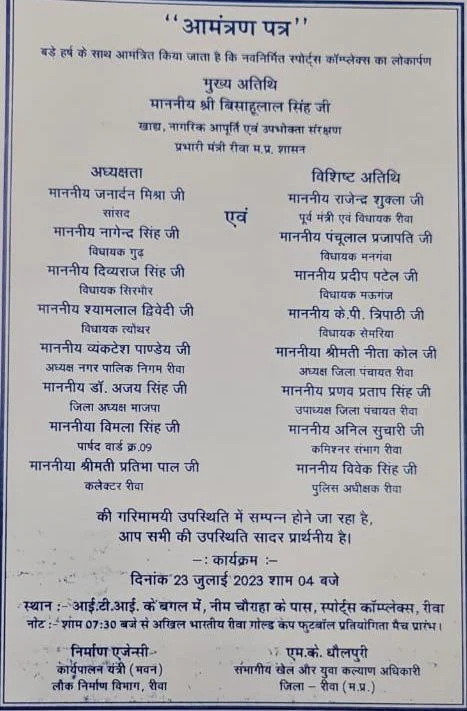 ‘‘आमंत्रण पत्र’’
बड़े हर्ष के साथ आमंत्रित किया जाता है कि नवनिर्मित स्पोर्ट्स कॉम्प्लेक्स का लोकार्पण
मुख्य अतिथि
माननीय श्री बिसाहूलाल सिंह जी
खाद्य, नागरिक आपूर्ति एवं उपभोक्ता संरक्षण
प्रभारी मंत्री रीवा म.प्र. शासन
अध्यक्षता
माननीय जनार्दन मिश्रा जी
सांसद
माननीय नागेन्द्र सिंह जी
विधायक गुढ़
माननीय दिव्यराज सिंह जी
विधायक सिरमौर
माननीय श्यामलाल द्विवेदी जी
विधायक त्योंथर
माननीय व्यंकटेश पाण्डेय जी
अध्यक्ष नगर पालिक निगम रीवा
माननीय डॉ. अजय सिंह जी
जिला अध्यक्ष भाजपा
माननीया विमला सिंह जी
पार्षद वार्ड क्र.09
माननीया श्रीमती प्रतिभा पाल जी
कलेक्टर रीवा
एवं
विशिष्ट अतिथि
माननीय राजेन्द्र शुक्ला जी
पूर्व मंत्री एवं विधायक रीवा
माननीय पंचूलाल प्रजापति जी
विधायक मनगंवा
माननीय प्रदीप पटेल जी
विधायक मऊगंज
माननीय के.पी. त्रिपाठी जी
विधायक सेमरिया
माननीया श्रीमती नीता कोल जी
अध्यक्ष जिला पंचायत रीवा
माननीय प्रणव प्रताप सिंह जी
उपाध्यक्ष जिला पंचायत रीवा
माननीय अनिल सुचारी जी
कमिश्नर संभाग रीवा
माननीय विवेक सिंह जी
पुलिस अधीक्षक रीवा
की गरिमामयी उपस्थिति में सम्पन्न होने जा रहा है,
आप सभी की उपस्थिति सादर प्रार्थनीय है।
–: कार्यक्रम :–
दिनांक 23 जुलाई 2023 शाम 04 बजे
स्थान :– आई.टी.आई. के बगल में, नीम चौराहा के पास, स्पोर्ट्स कॉम्प्लेक्स, रीवा
नोट :– शाम 07:30 बजे से अखिल भारतीय रीवा गोल्ड कप फुटबॉल प्रतियोगिता मैच प्रारंभ।
निर्माण एजेन्सी
कार्यपालन यंत्री (भवन)
लौक निर्माण विभाग, रीवा
एम.के. धौलपुरी
संभागीय खेल और युवा कल्याण अधिकारी
जिला – रीवा (म.प्र.)